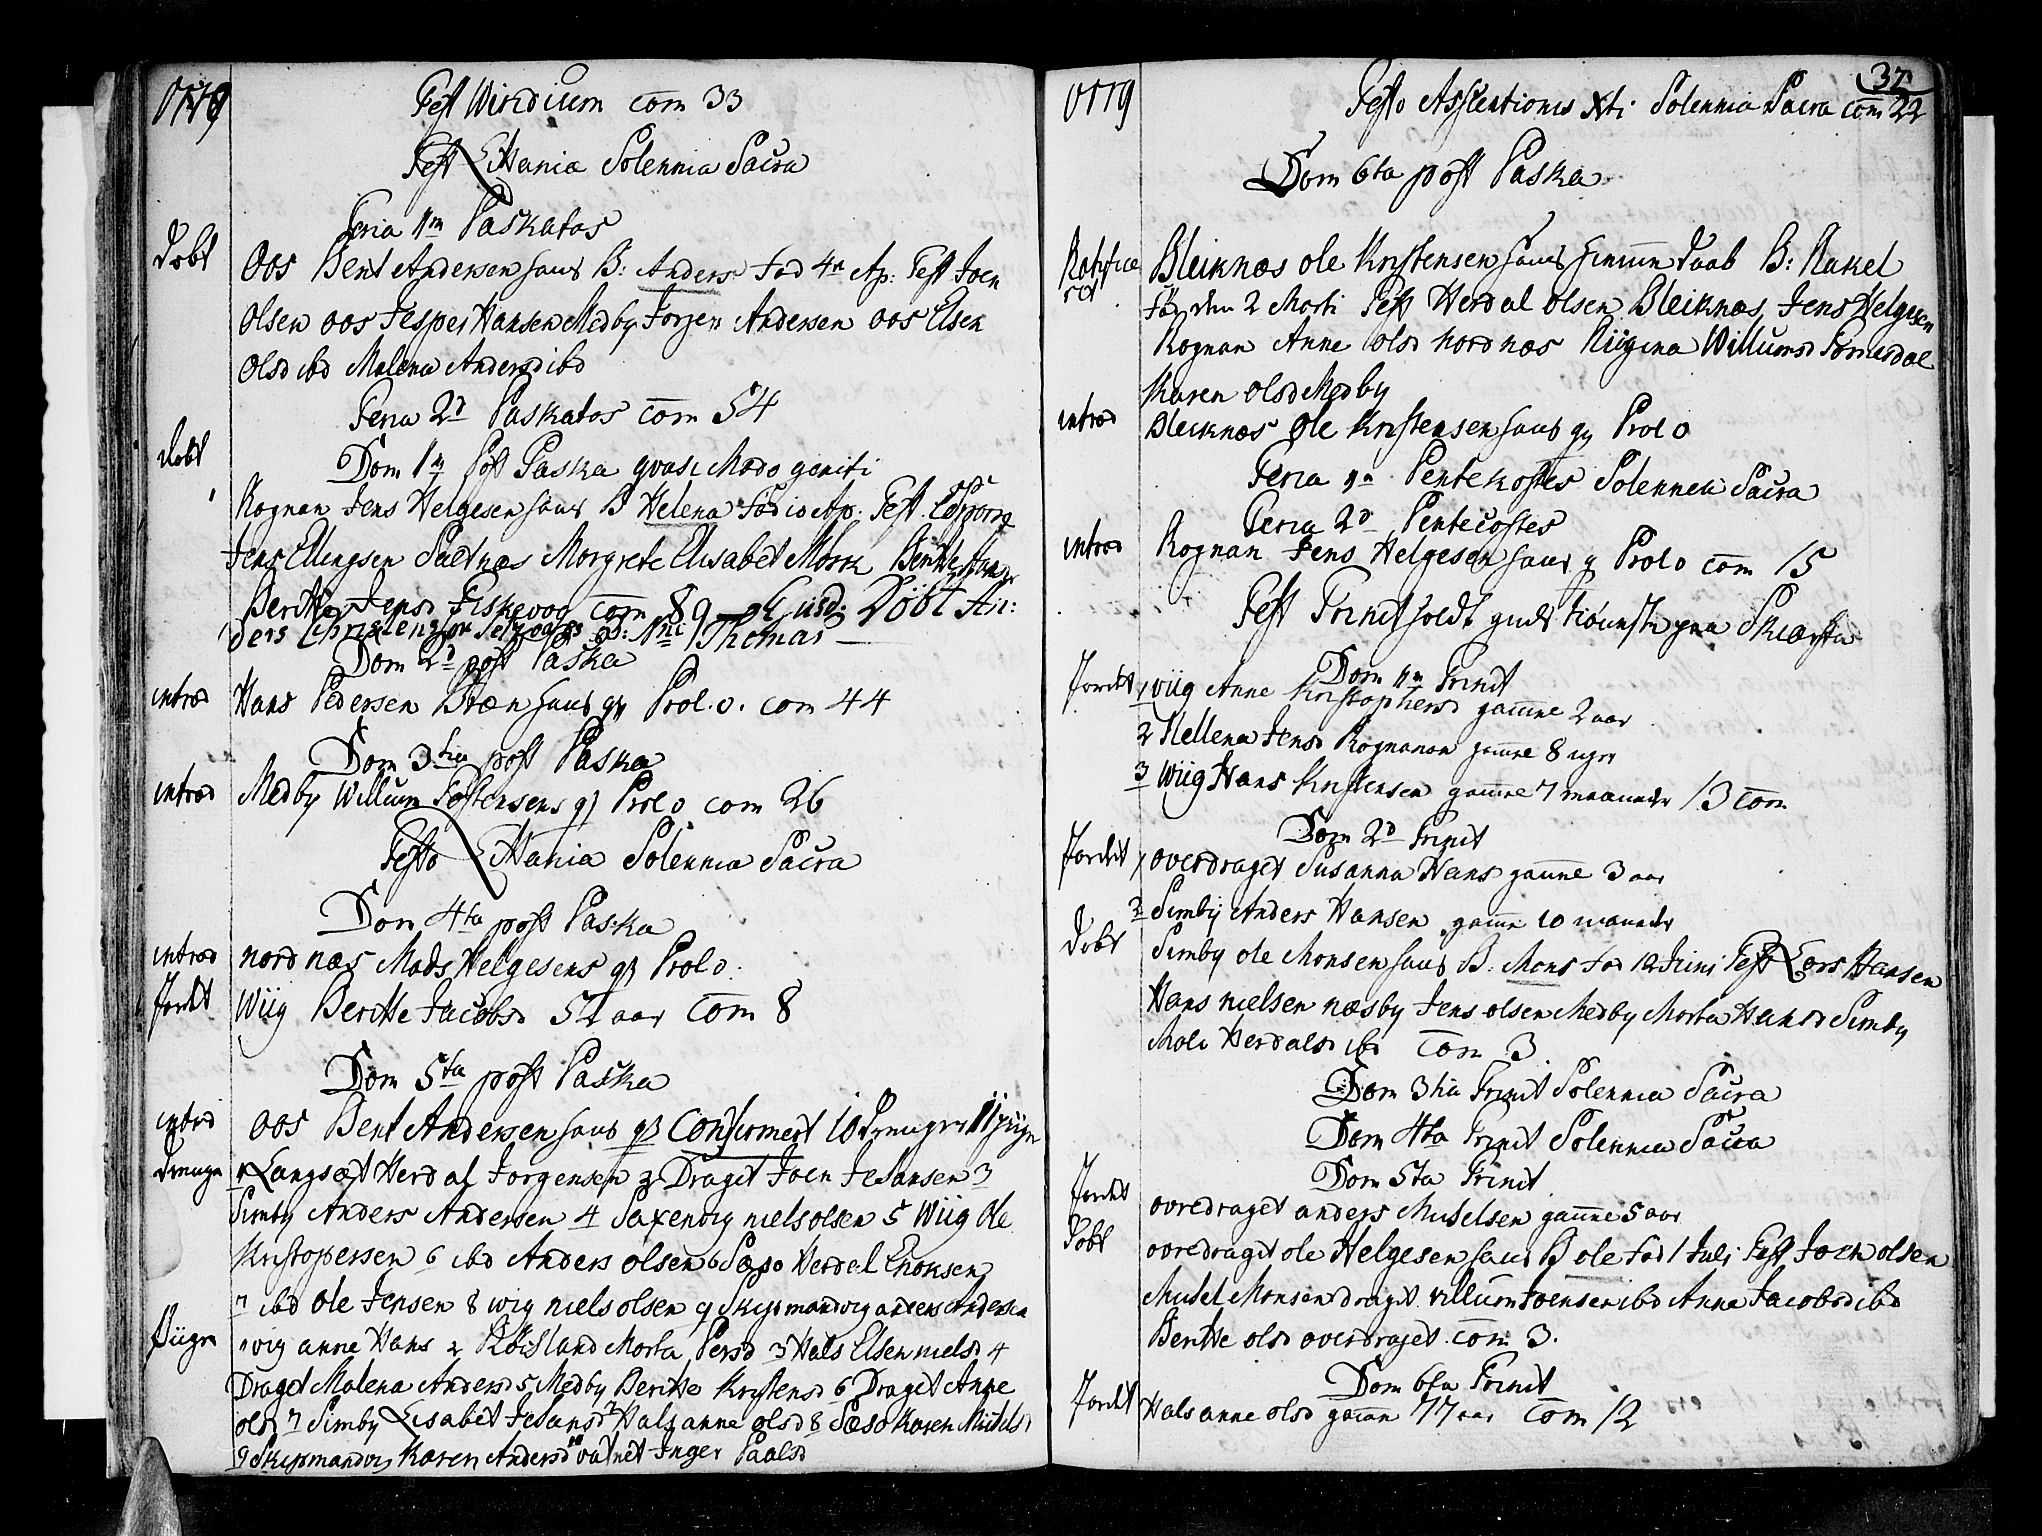 1779
Fest Wiridium com 33
Fest Litania Solennia Sacra
Feria 1m Paskatos
Døbt
Oos Bent Andersen haus B: Anders Fød 4n Ap: Test Joen
Olsen oos Jesper Hansen Medby Jorgen Andersen oos Elsen
Olsd ibd Malena Andersd ibd
Feria 2d Paskatos com 54
Døbt
Dom 1m post Paska qvasi Modo geniti
Rognan Jens Helgesen haus B Helena Fød 10 Ap: Test
Jens Ellingsen Saltnæs Morgrete Elisabet Mork
Beritte Jensd Fiskevog com 89 Eusd: Døbt An:
ders Christensøn B: Nni Thomas
Dom 2d post Paska
introd Hans Pedersen Bræn haus qv Prol. o. com 44
Dom 3tia post Paska
introd Medby Willum Postensens qv Prol o com 26
Festo Litania Solennia Sacra
Dom 4ta post Paska
introd nordnæs Mads Helgesens qv Prol o.
Jordet Wiig Beritte Jacobsd 52 aar Com 8
Dom 5ta post Paska
introd Oos Bent Andersen haus qv Confirmert 10 Drenge 11 piiger
Drenge 1 Langsæt Herdal Jorgensen 2 Draget Joen Jesansen 3
Simby Anders Andersen 4 Saxenvig niels olsen 5 Wiig Ole
Kristopersen 6 ibd Anders olsen 6 Sæso Herdal Enoksen
7 ibd Ole Jensen 8 wig niels olsen 9 Skipmandvig anders andersen
Piiger 1 vig anne Hans 2 Røisland Morta Persd 3 Hals Elsen nielsd 4
Draget Malena Andersd 5 Medby Beritte Kristensd 6 Draget Anne
olsd 7 Simby Lisabet Jesansd 7 Hals anne olsd 8 Sæso Karen Miielsd
9 Skipmandvig Karen Andersd 10 vatnet Inger Paalsd
37
1779
Festo Assentionis Xti Solennia Sacra com 22
Dom 6ta post Paska
Ratifice
ret
Bleiknæs ole Kristensen haus hiemme Daab B: Rakel
Fø den 2 Marti Test Herdal Olsen Bleiknæs Jens Helgesen
Rognan Anne olsd nordnæs Riigina Willumsd
Karen Olsd Medby
introd Bleiknæs Ole Kristensen haus qv Prol o
Feria 1m Pentekostes Solenneti Sacra
Feria 2d Pentecostes
introd Rognan Jens Helgesen haus q Prol o com 15
Fest Trinit holdt guds tieneste paa Skiærsta
Dom 1m Trinit
Jordet 1 wiig Anne Kristophersd gamme 2 aar
2 Hellena Jensd Rognanen gamme 8 uger
3 Wiig Hans Kristensen gamme 7 maaneder 13 com
Dom 2d Trinit
Jordet 1 overdraget Susanna Hans gamme 3 aar
2 Simby Anders Hansen gamme 10 maaneder
Døbt Simby ole Monsen haus B: Mons Fød 12 Juni Test Lars Hansen
Hans nielsen næsby Jens olsen Medby Morta Hansd Simby
Mali Herdalsd ibd Com 3
Dom 3tia Trinit Solennia Sacra
Dom 4ta Trinit Solennia Sacra
Dom 5ta Trinit
Jordet ovredraget anders Muselsen gamme 5 aar
Døbt ovredraget ole Helgesen haus B ole Fød 1 Juli Test Joen olsen
Musel Monsen draget villum Joensen ibd Anne Jacobsd ibd
Beritte olsd overdraget com 3.
Dom 6ta Trinit
Jordet Hals anne olsd gamm 77 aar Com 12